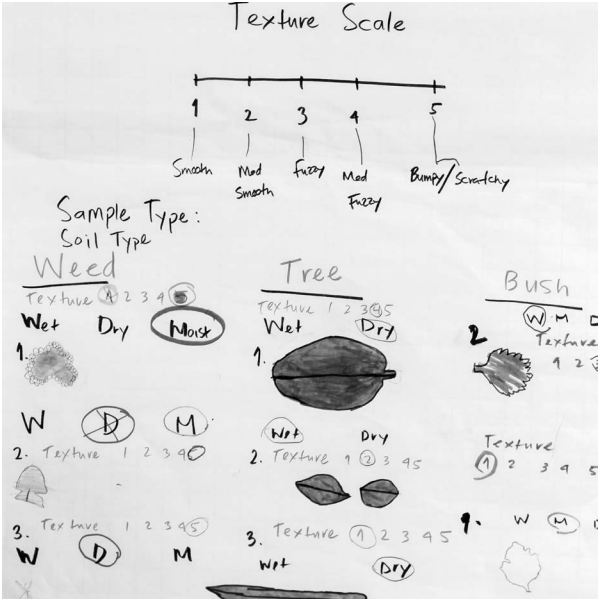 Texture Scale
1 2 3 4 5
Smooth
Med Smooth
Fuzzy
Med Fuzzy
Bumpy/Scratchy
Sample Type:
Soil Type
Weed
Texture 1 2 3 4
Wet Dry Moist
1.
W D M
2. Texture 1 2 3 4 5
3. Texture 1 2 3 4 5
W D M
Tree
Texture 1 2 3 4 5
Wet Dry
1.
Wet Dry
2. Texture 1 2 3 4 5
3. Texture 1 2 3 4 5
Wet Dry
Bush
W M D
2 Texture
1 2
Texture
1 2 3 4 5
W M